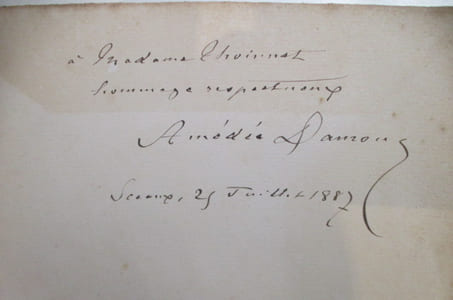 à Madame Thoinnet
hommage respectueux
Amédée Damour
Sceaux, 25 Juillet 1887